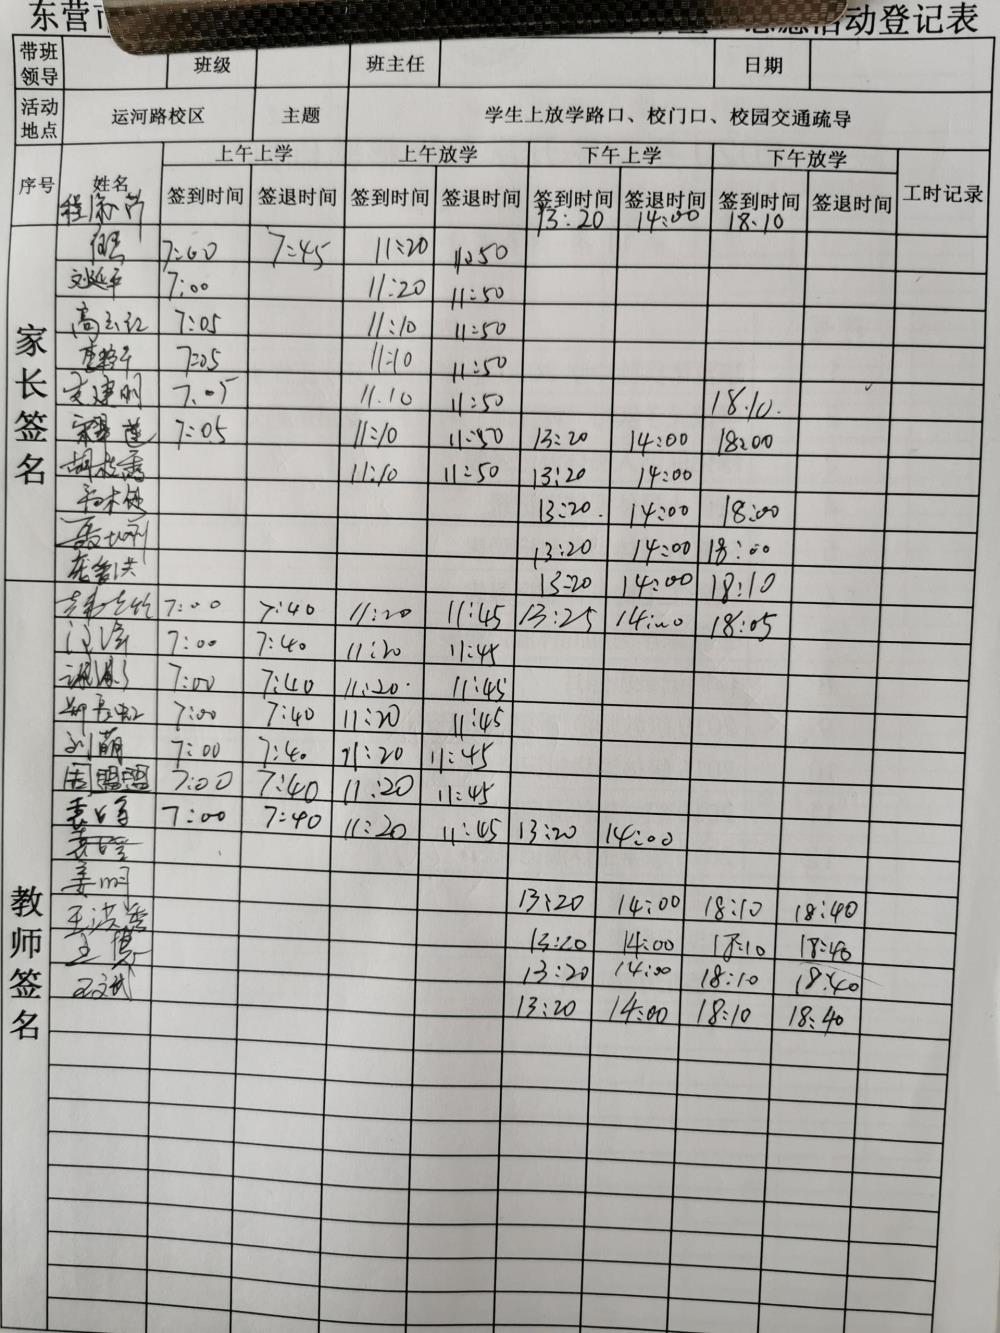 东营市 志愿活动登记表
带班领导 班级 班主任 日期
活动地点 运河路校区 主题 学生上放学路口、校门口、校园交通疏导
序号 姓名 上午上学 上午放学 下午上学 下午放学 工时记录
签到时间 签退时间 签到时间 签退时间 签到时间 签退时间 签到时间 签退时间
13:20 14:00 18:10
家长签名
7:00 7:45 11:20 11:50
刘延平 7:00 11:20 11:50
高玉红 7:05 11:10 11:50
7:05 11:10 11:50
宋建明 7:05 11.10 11:50 18:10.
7:05 11:10 11:50 13:20 14:00 18:00
11:10 11:50 13:20 14:00
13:20. 14:00 18:00
13:20 14:00 18:00
13:20 14:00 18:10
教师签名
7:00 7:40 11:20 11:45 13:25 14:00 18:05
7:00 7:40 11:20 11:45
7:00 7:40 11:20 11:45
7:00 7:40 11:20 11:45
刘萌 7:00 7:40 11:20 11:45
周盟盟 7:00 7:40 11:20 11:45
7:00 7:40 11:20 11:45 13:20 14:00
姜明
13:20 14:00 18:10 18:40
王洪秀 13:20 14:00 18:10 18:40
13:20 14:00 18:10 18:40
王文武 13:20 14:00 18:10 18:40